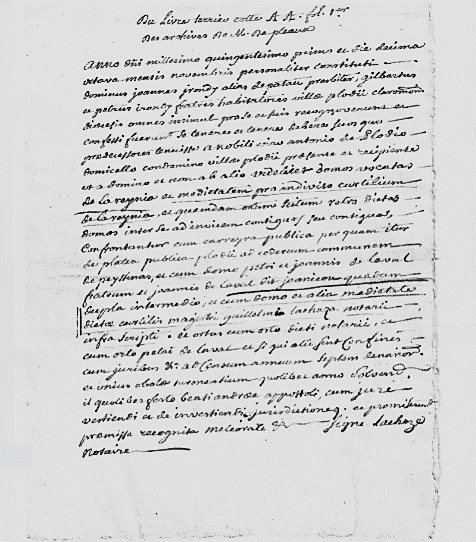 Du Livre terrier cotte A A. fol. 1er
Des archives De M. De pleaux
Anno dni millesimo quingentesimo primo et die decima
octava mensis novembris personaliter constituti
dominus joannes jrondy alias de natau presbiter, gilbertus
et petrus jrondy fratres habitatores villæ plodii claromontis
diocesis omnes insimul pro se et suis recognoverunt et
confessi fuerunt se tenere et tenere debere suosque
predecessores tenuisse a nobili viro antonio de Plodio
domicello condomino villæ plodii presente et recipiente
et a domino et non ab alio videlicet domos vocatas
de la reynia et medietatem pro indiviso curtilium
de la reynia, et quemdam ortum retro dictas
domos inter se ad invicem contiguos seu contiguas,
Confrontantur cum carreyra publica per quam itur
de platea publica plodii ad codercum communem
de peyssinas, et cum domo petri et joannis de laval
fratrum et joannis de laval dit joanicou quadam
intermedio, et cum domo et alia medietate
dictæ curtilis magistri guillelmi lacheze notarii
infra scripti. et ortus cum orto dicti notarii, et
cum orto petri de laval et si qui alii sunt confines.
cum juribus &a. ad Censum annuum septem denarior.
et unius obolæ turonensium quolibet anno solvend.
in quolibet festo beati andreæ appostoli, cum jure
vertiendi et de investiendi jurisdictioneq. et promiserunt
premissa recognita meliorare &a Signé lacheze
notaire